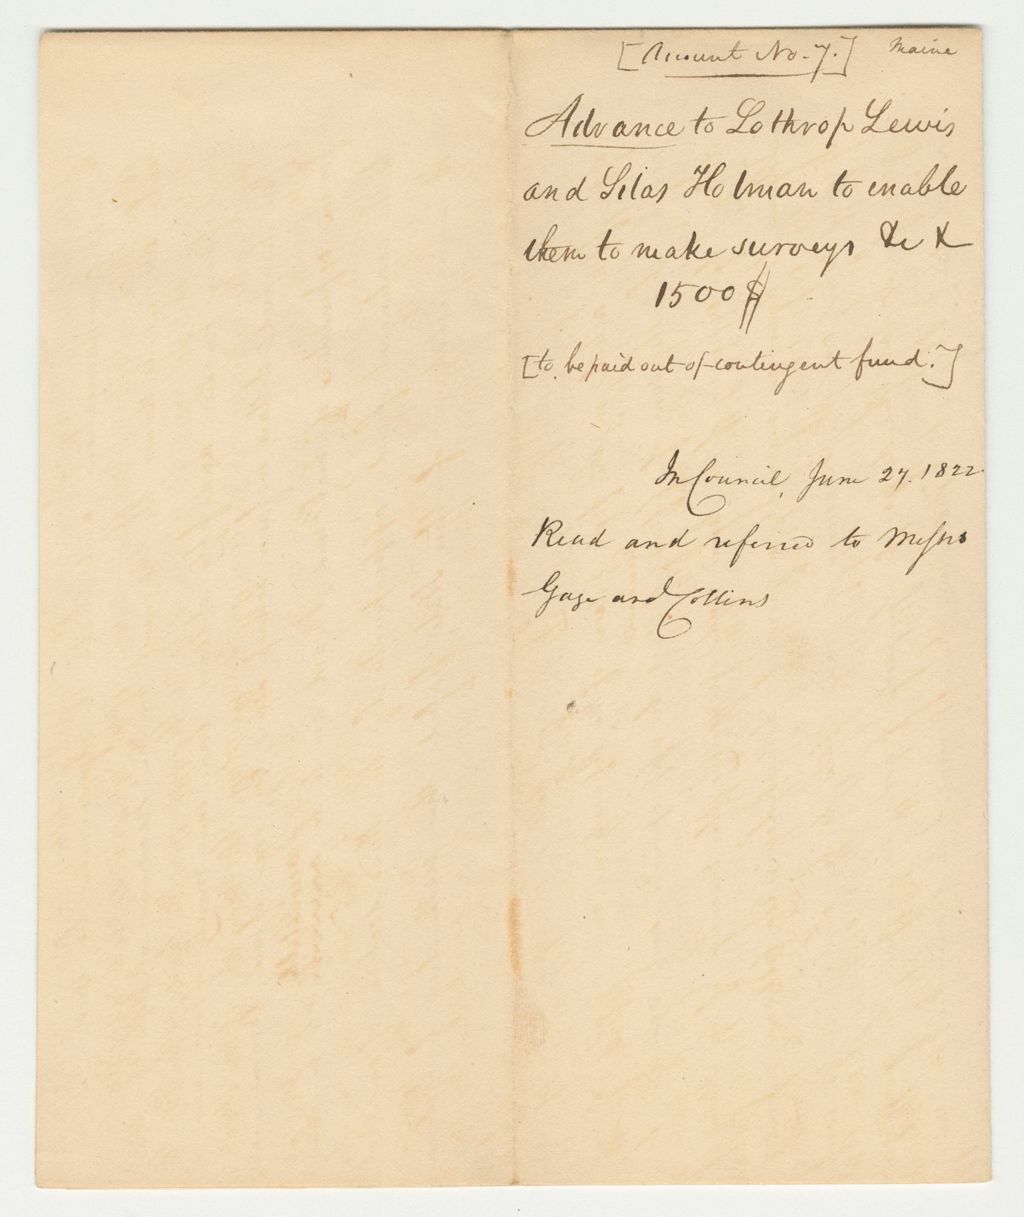 [Account No. 7.] Maine
Advance to Lothrop Lewis
and Silas Holman to enable
them to make surveys &c &
1500$
[to be paid out of contingent fund.]
In Council, June 27. 1822.
Read and referred to Messrs
Gage and Collins